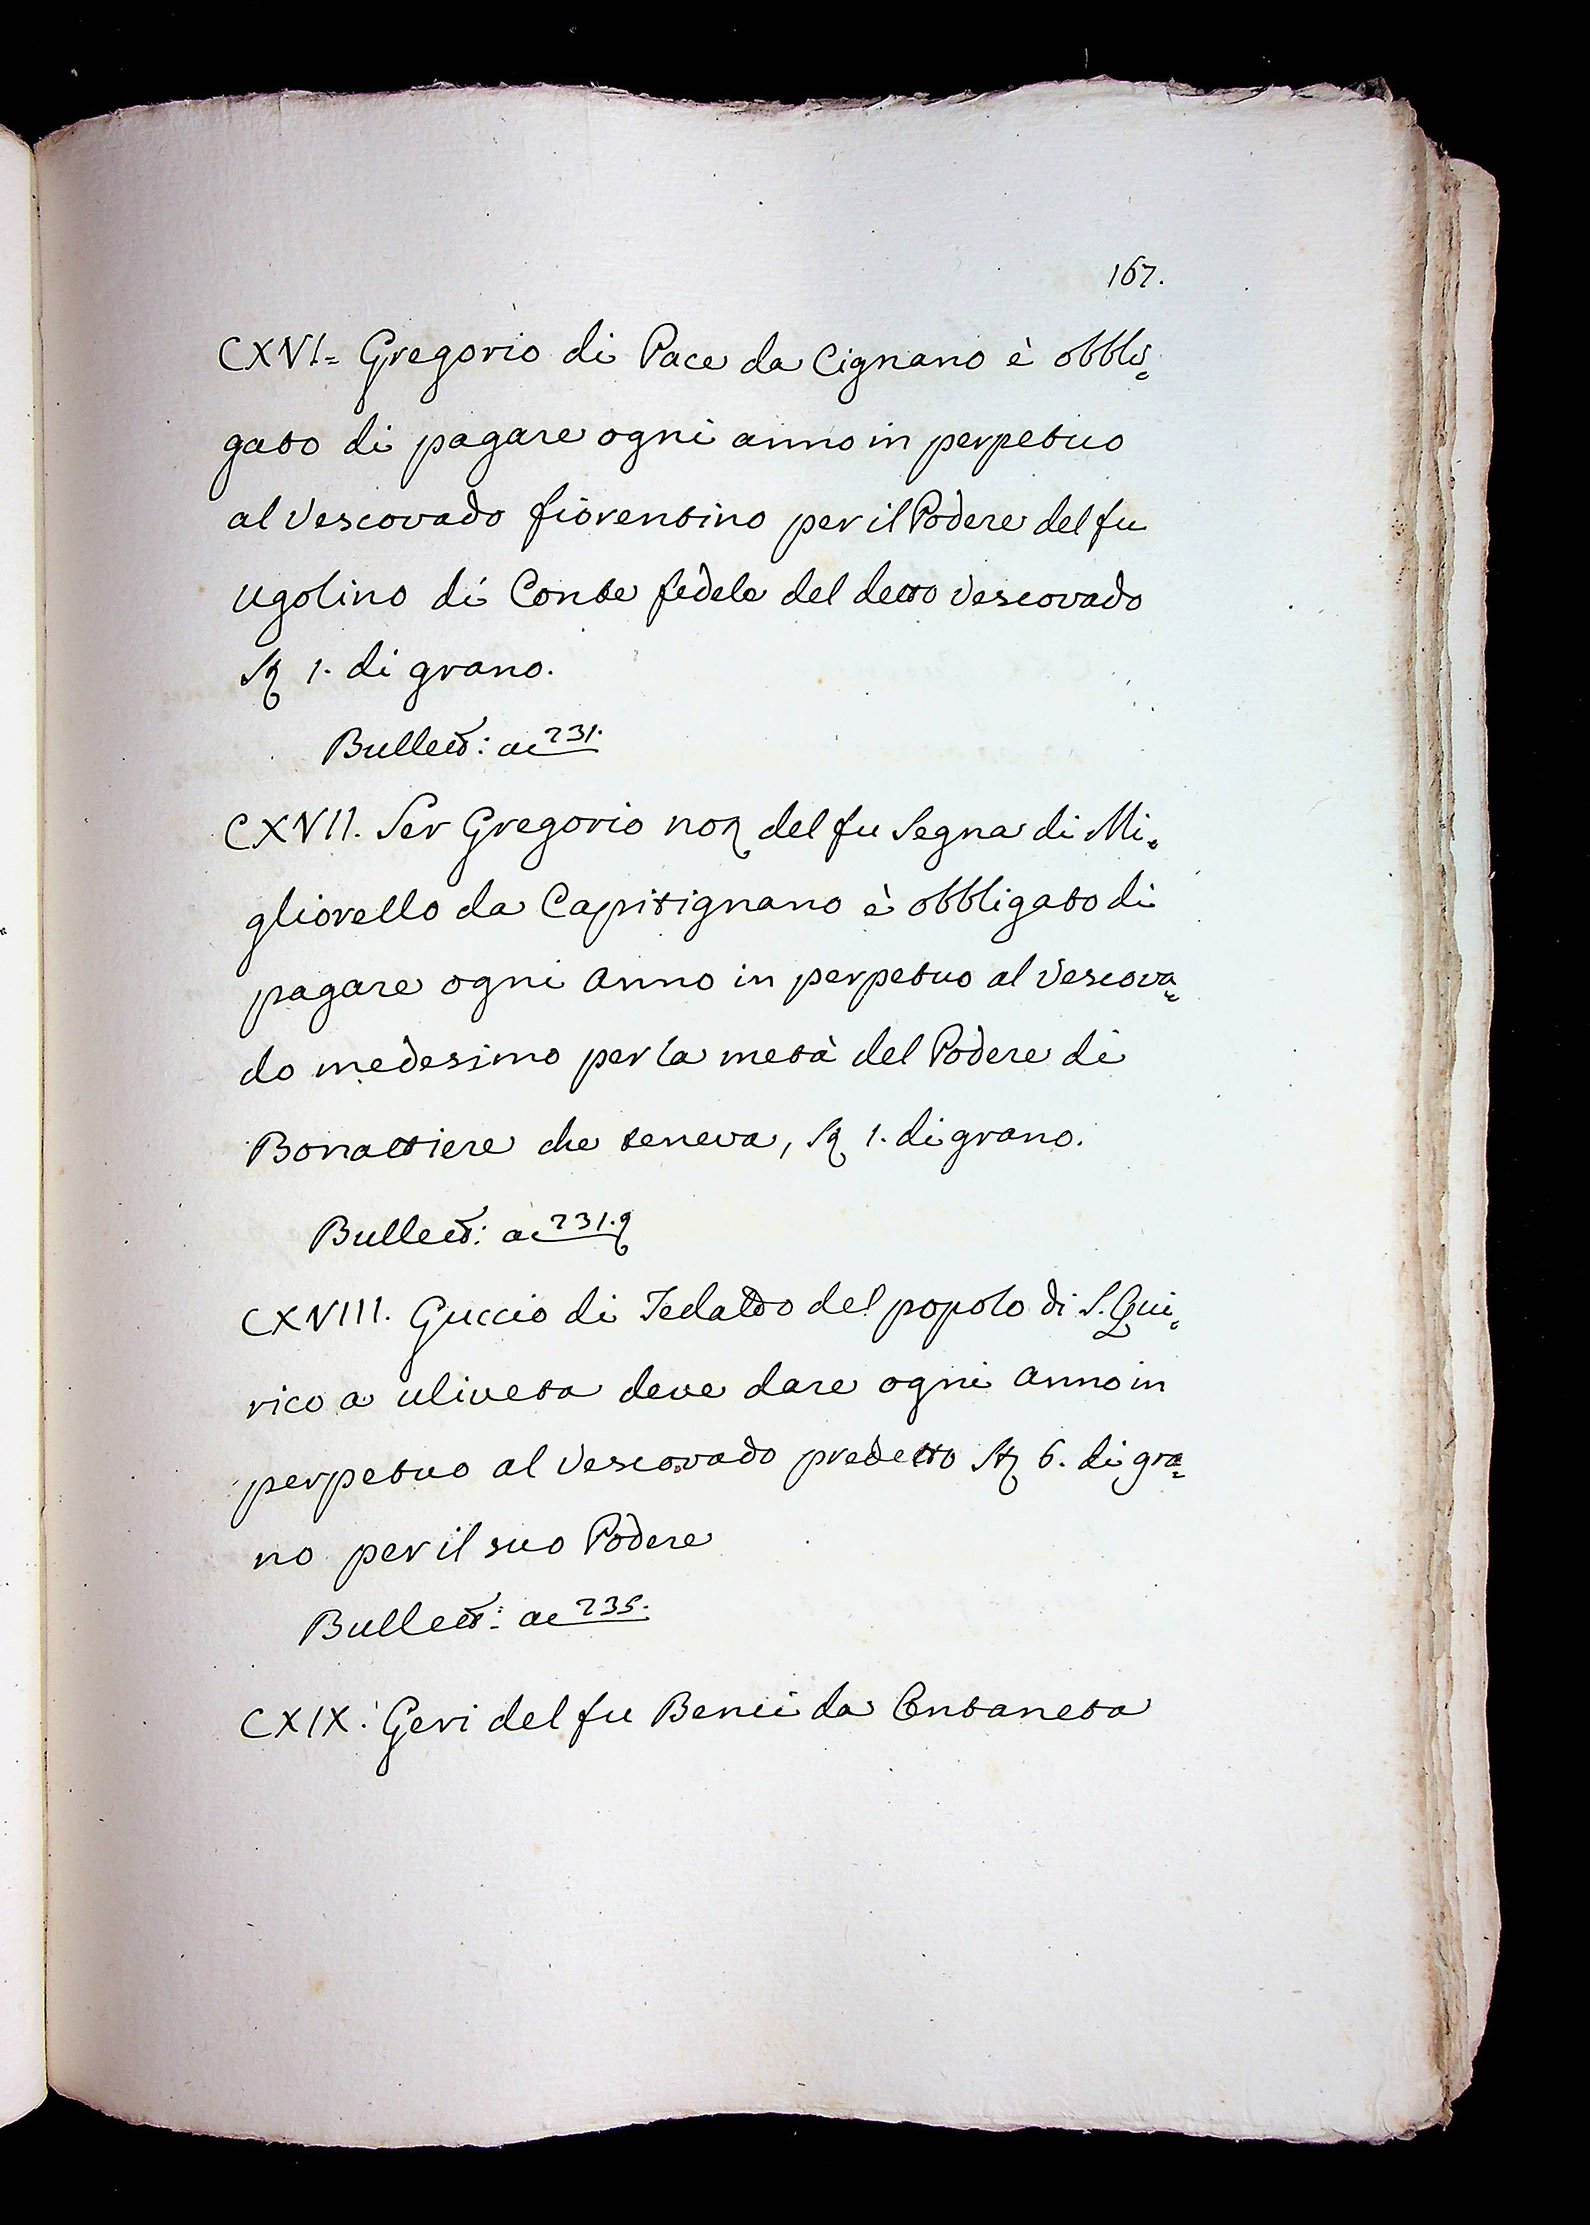 167.
CXVI= Gregorio di Pace da Cignano è obbli=
gato di pagare ogni anno in perpetuo
al Vescovado fiorentino per il Podere del fu
Ugolino di Conte fedele del detto Vescovado
St 1. di grano.
Bullett: a 231.
CXVII. Ser Gregorio not del fu Segna di Mi=
gliorello da Capitignano è obbligato di
pagare ogni Anno in perpetuo al Vescova=
do medesimo per la metà del Podere di
Bonattiere che teneva, St 1. di grano.
Bullett: a 231.
CXVIII. Guccio di Tedaldo del popolo di S. Qui=
rico a uliveta deve dare ogni Anno in
perpetuo al Vescovado predetto St 6. di gra=
no per il suo Podere
Bullett: a 235.
CXIX. Geri del fu Benci da